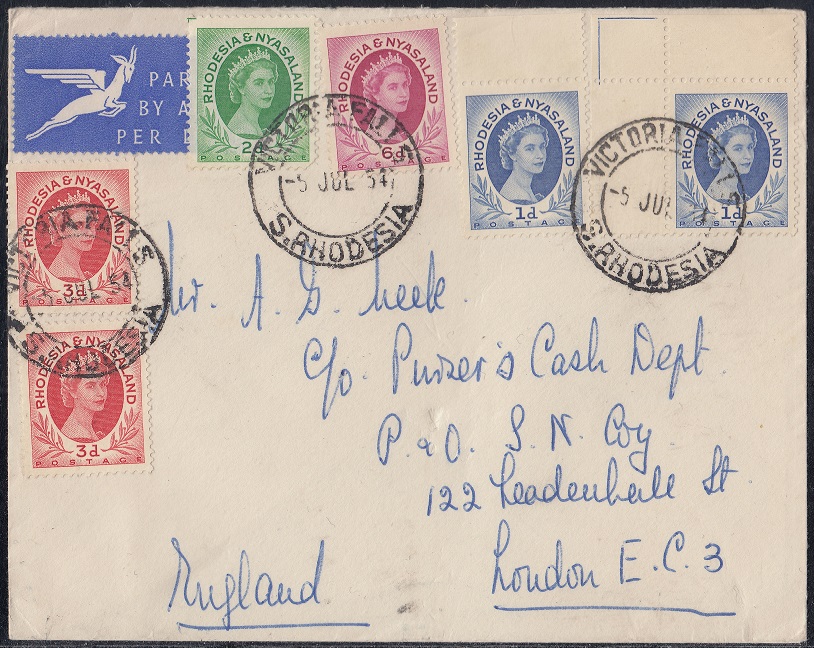 PAR
BY A
PER
RHODESIA & NYASALAND
2d
POSTAGE
RHODESIA & NYASALAND
6d
POSTAGE
RHODESIA & NYASALAND
1d
POSTAGE
RHODESIA & NYASALAND
1d
POSTAGE
VICTORIA FALLS
-5 JUL 54
S. RHODESIA
VICTORIA FALLS
-5 JUL
S. RHODESIA
RHODESIA & NYASALAND
3d
POSTAGE
RHODESIA & NYASALAND
3d
POSTAGE
JUL 54
Mr. A. G. Leete.
c/o Purser's Cash Dept.
P & O. S. N. Coy.
122 Leadenhall St
London E.C.3
England